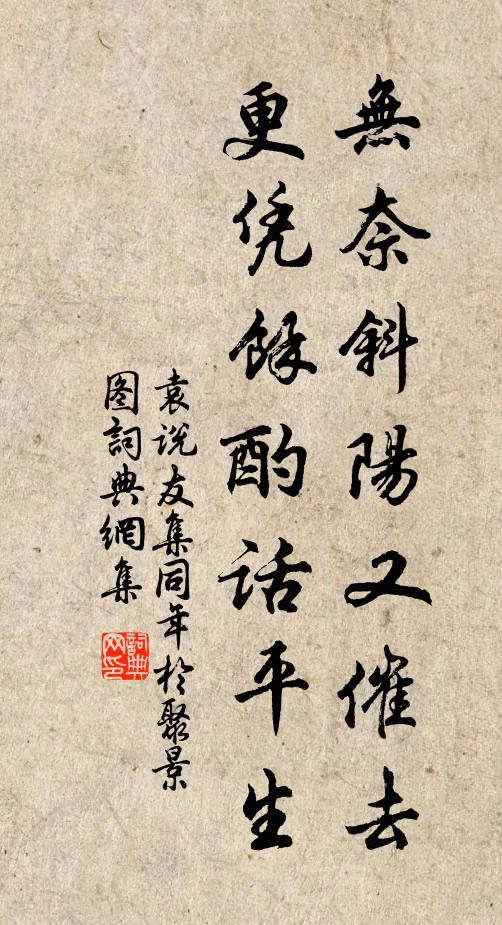 無奈斜陽又催去
更凭餘酌話平生
袁说友集同年於聚景
图詞典網集
詞典
网印